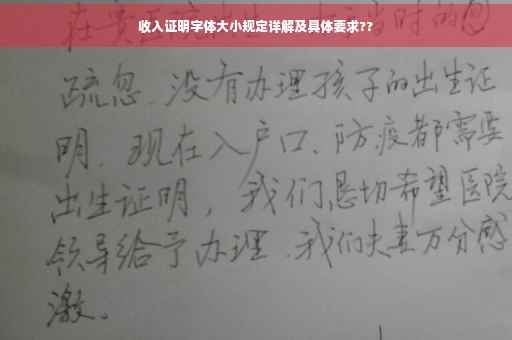 收入证明字体大小规定详解及具体要求??
当时的
疏忽、没有办理孩子的出生证
明、现在入户口、防疫都需要
出生证明，我们恳切希望医院
领导给予办理、我们夫妻万分感
激。